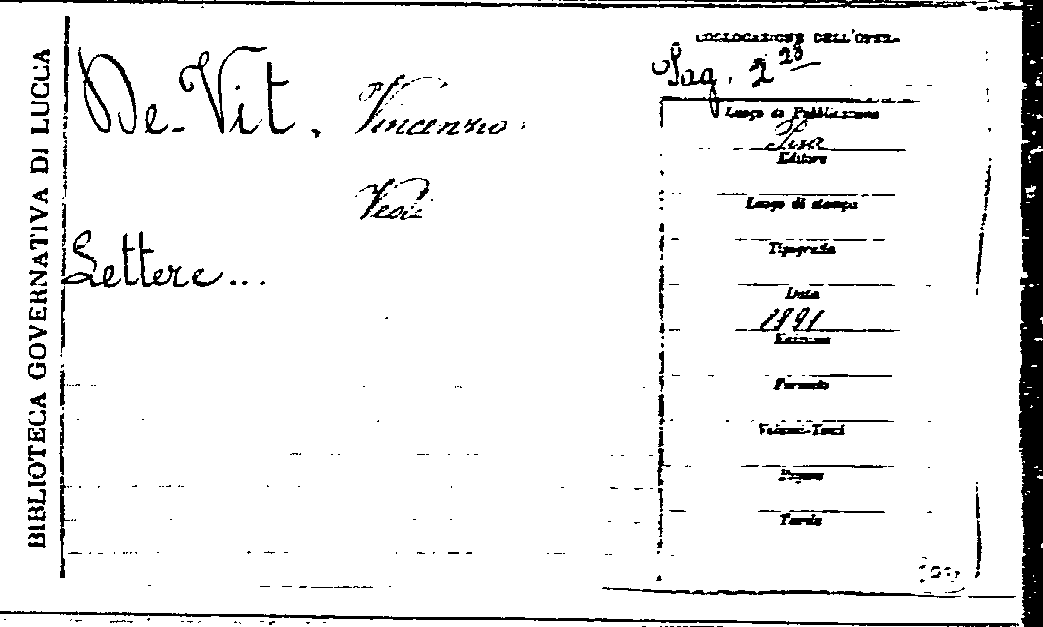 BIBLIOTECA GOVERNATIVA DI LUCCA
De-Vit. Vincenzo.
Vedi
Lettere...
COLLOCAZIONE DELL'OPERA
Pag. 2 28
Luogo di Pubblicazione
Pisa
Editore
Luogo di stampa
Tipografia
Data
1891
Edizione
Formato
Volumi-Tomi
Pagine
Tavole